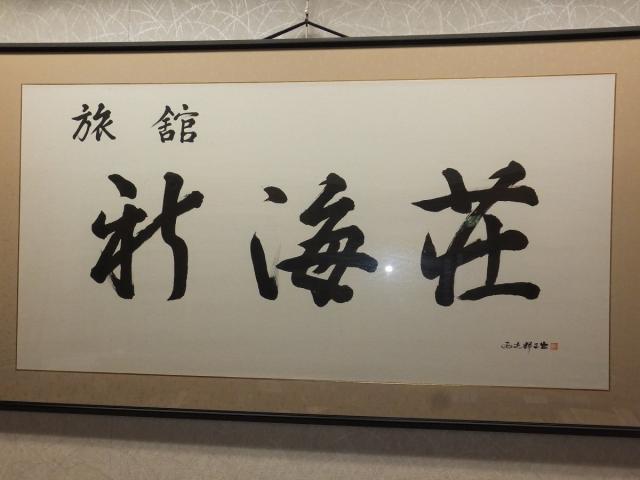 旅舘
新海荘